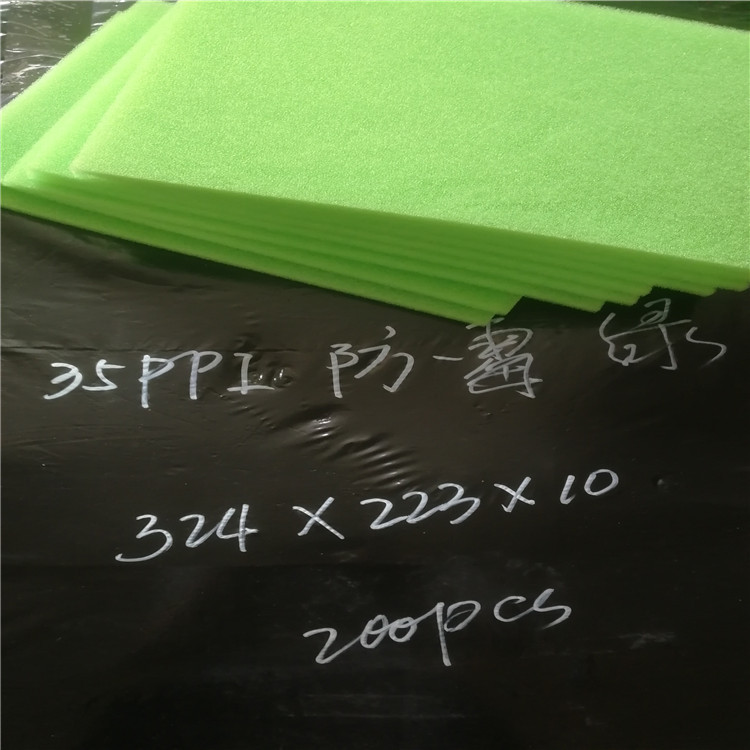 35PPI 防霉 绿
324×223×10
200pcs